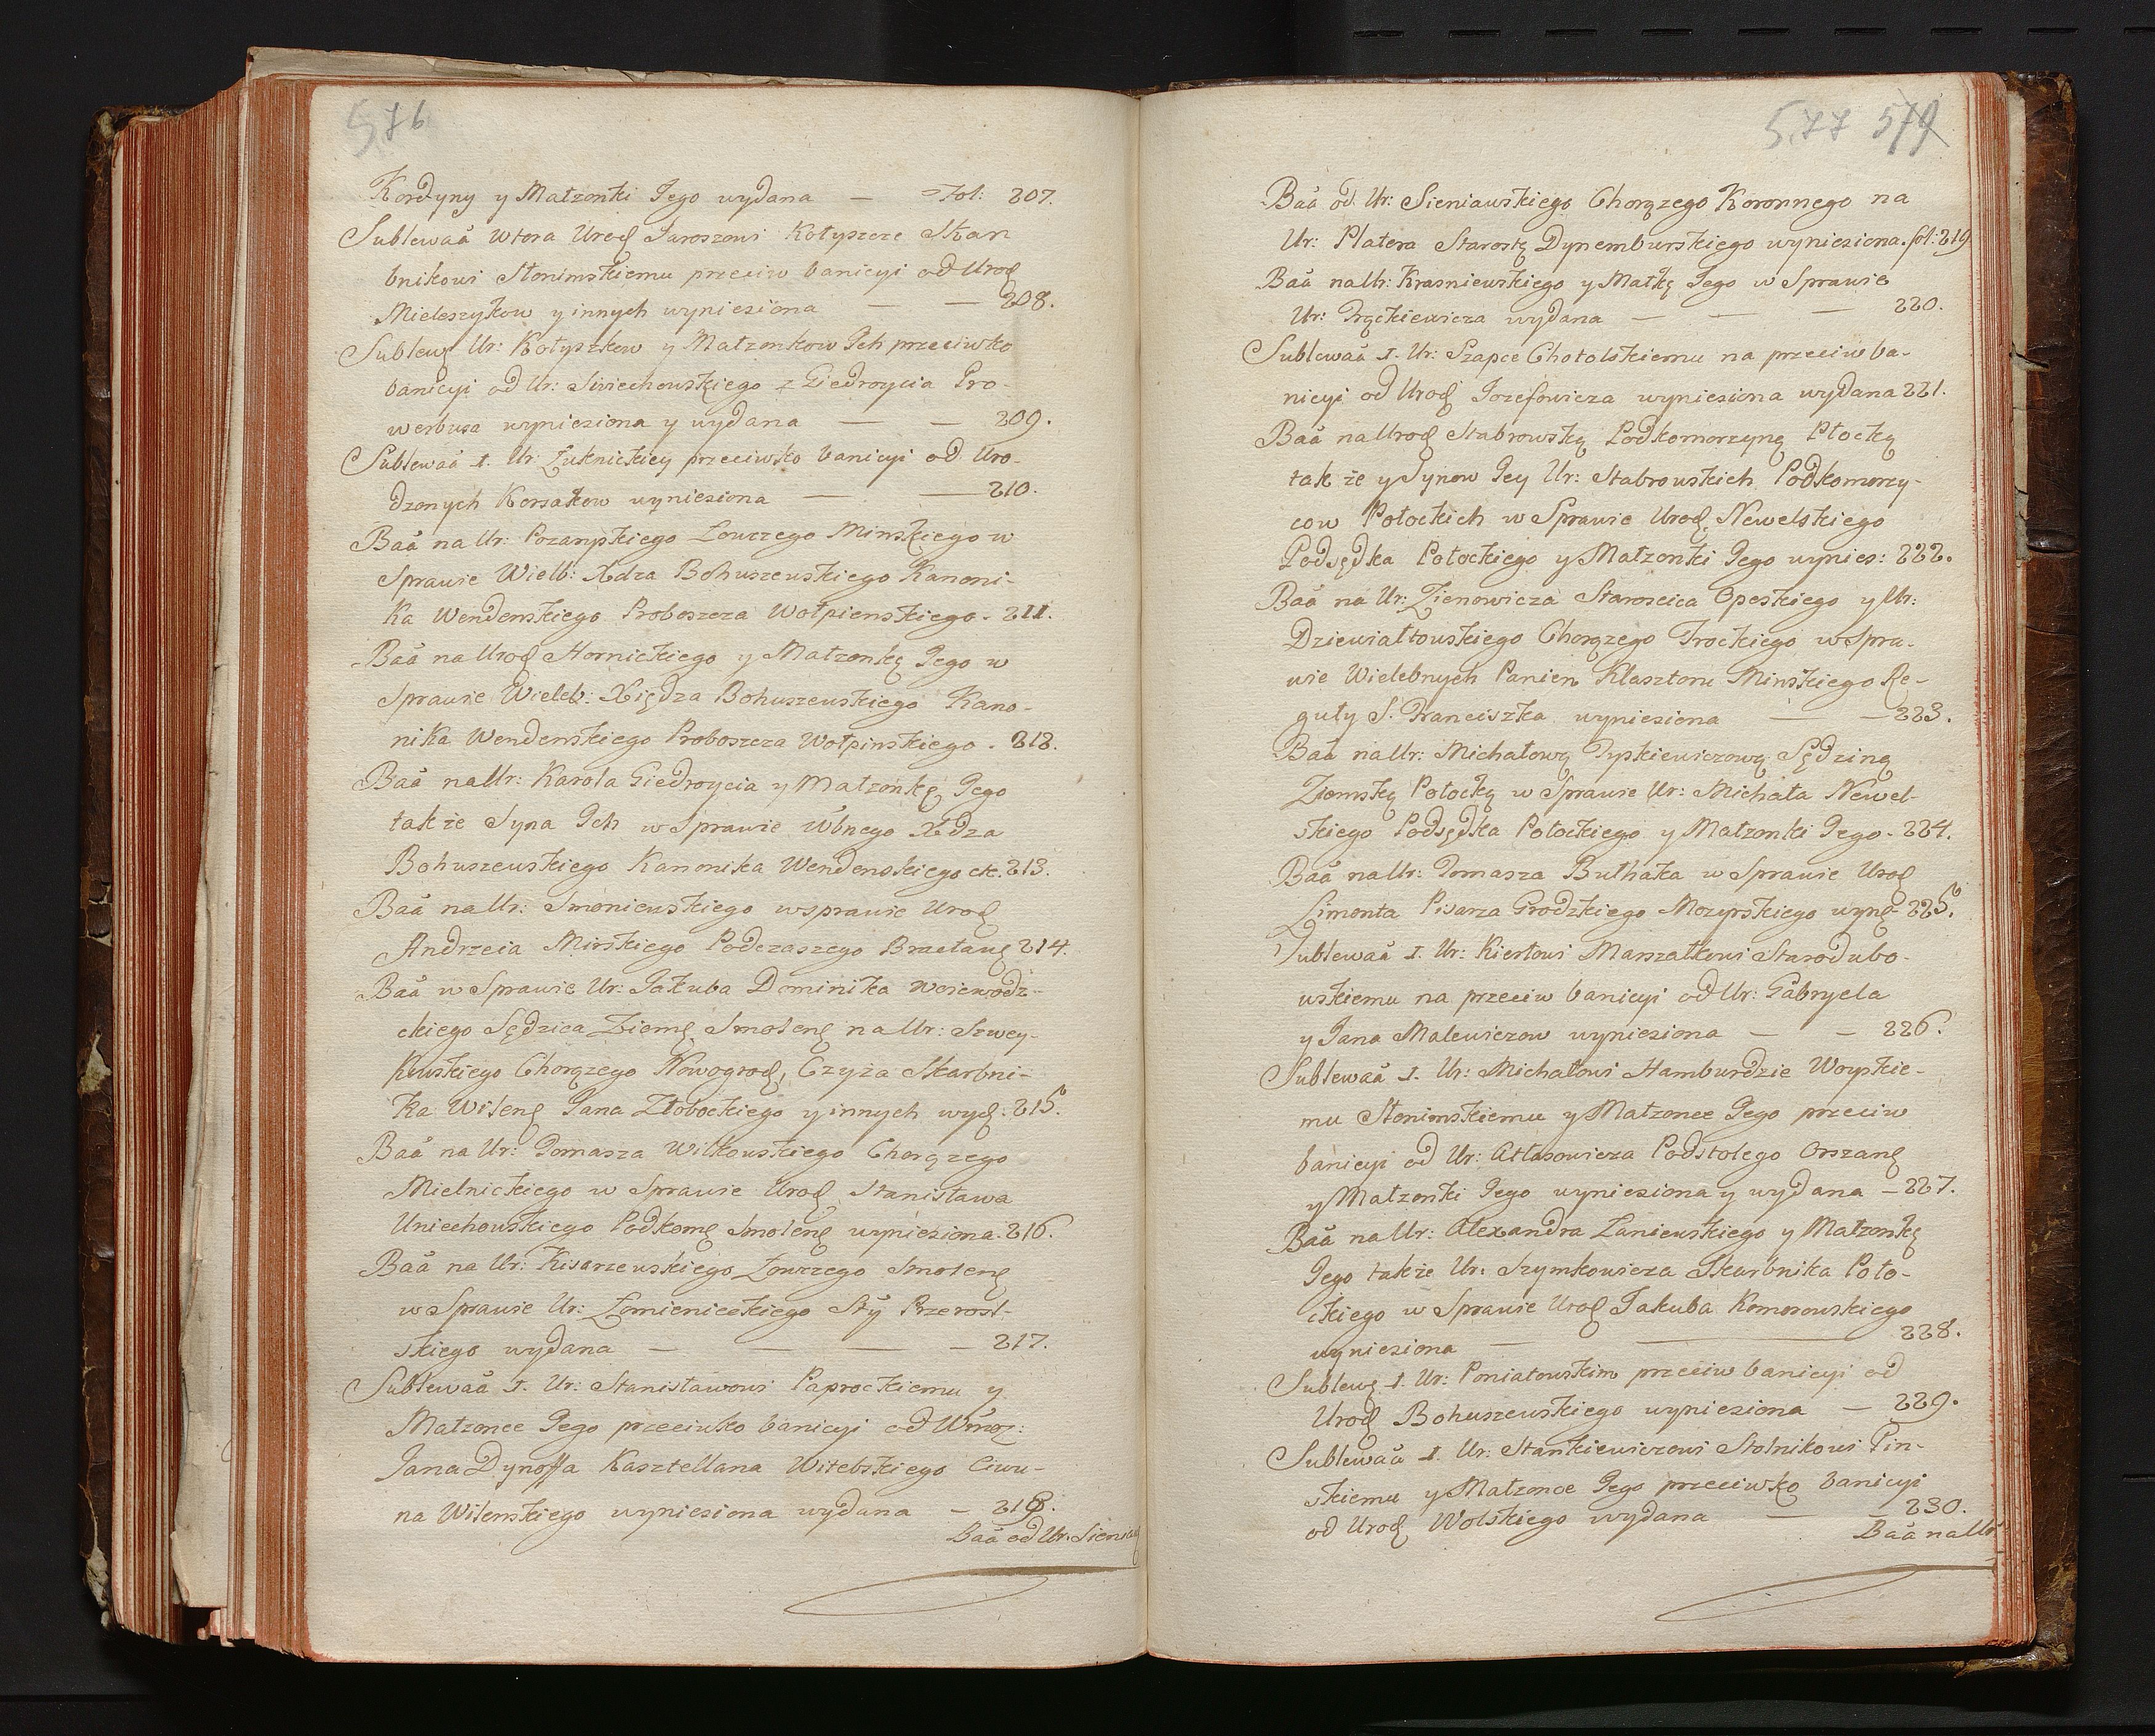 576
Kordyny y Małzonki Jego wydana — fol: 207.
Sublewaã wtora Urod Jaroszowi Kołyszce Skar
bnikowi Słonimskiemu przeciw banicyi od Urod
Mieleszykow y innych wyniesiona — — 208.
Sublew Ur: Kołyszkow y Małzonkow Jch przeciwko
banicyi od Ur: Siwiechowskiego z Giedroycia Pro-
werbusa wyniesiona y wydana — — 209.
Sublewaã 1. Ur: Łuknickiey przeciwko banicyi od Uro-
dzonych Korsakow wyniesiona — — 210.
Baã na Ur: Pozarypskiego Łowczego Minskiego w
Sprawie Wielb: Xdza Bohuszewskiego Kanoni-
ka Wendenskiego Proboszcza Wołpienskiego - 211.
Baã na Urod Hornickiego y Małzonkę Jego w
Sprawie Wieleb: Xiędza Bohuszewskiego Kano-
nika Wendenskiego Proboszcza Wołpinskiego - 212.
Baã na Ur: Karola Giedroycia y Małzonkę Jego
także Syna Jch w Sprawie Wbnego Xdza
Bohuszewskiego Kanonika Wendenskiego etc. 213.
Baã na Ur: Smoniewskiego wsprawie Urod
Andrzeia Mirskiego Podczaszego Bracław 214.
Baã w Sprawie Ur: Jakuba Dominika Woiewodz-
ckiego Sędzica Ziem Smolen na Ur: Szwey-
kowskiego Chorązego Nowogrod, Czyża Skarbni-
ka Wilen Jana Złobockiego y innych wyd: 215.
Baã na Ur: Tomasza Wilkowskiego Chorązego
Mielnickiego w Sprawie Urod Stanisława
Uniechowskiego Podkom Smolen wyniesiona. 216.
Baã na Ur: Kisarzewskiego Łowczego Smolen
w Sprawie Ur: Łomienieckiego Stỹ Przerosl-
skiego wydana — — — — 217.
Sublewaã 1. Ur: Stanisławowi Paprockiemu y
Małzonce Jego przeciwko banicyi od Wmoz:
Jana Dynoffa Kasztellana Witebskiego Ciwu-
na Wilenskiego wyniesiona wydana — 218.
Baã od Ur: Sieniaw
577 579
Baã od Ur: Sieniawskiego Chorązego Koronnego na
Ur: Platera Starostę Dynemburskiego wyniesiona. fol: 219
Baã na Ur: Krasniewskiego y Matkę Jego w Sprawie
Ur: Frąckiewicza wydana — — — 220.
Sublewaã 1. Ur: Szapce Chotolskiemu na przeciw ba-
nicyi od Urod Jozefowicza wyniesiona wydana 221.
Baã na Urod Stabrowską Podkomorzynę Płocką
tak że y Synow Jey Ur: Stabrowskich Podkomorzy-
cow Połockich w Sprawie Urod Newelskiego
Podsędka Połockiego y Małzonki Jego wynies: 222.
Baã na Ur: Zienowicza Staroscica Opeskiego y Ur:
Dziewiałtowskiego Chorązego Trockiego w Spra-
wie Wielebnych Panien Klasztoru Minskiego Re-
guły S. Franciszka wyniesiona — — 223.
Baã na Ur: Michałową Tyszkiewiczową Sędzinę
Ziemską Połocką w Sprawie Ur: Michała Newel-
skiego Podsędka Połockiego y Małzonki Jego - 224.
Baã na Ur: Tomasza Bułhaka w Sprawie Urod
Limonta Pisarza Grodzkiego Mozyrskiego wyn- 225.
Sublewaã 1. Ur: Kierłowi Marszałkowi Starodubo-
wskiemu na przeciw banicyi od Ur: Gabryela
y Jana Malewiczow wyniesiona — — 226.
Sublewaã 1. Ur: Michałowi Hamburdzie Woyskie-
mu Słonimskiemu y Małzonce Jego przeciw
banicyi od Ur: Atłasowicza Podstolego Orszan
y Małzonki Jego wyniesiona y wydana — 227.
Baã na Ur: Alexandra Łaniewskiego y Małzonkę
Jego także Ur: Szymkowicza Skarbnika Poło-
ckiego w Sprawie Urod Jakuba Komorowskiego
wyniesiona — — 228.
Sublew 1. Ur: Poniatowskim przeciw banicyi od
Urod Bohuszewskiego wyniesiona — 229.
Sublewaã 1. Ur: Stankiewiczowi Stolnikowi Pin-
skiemu y Małzonce Jego przeciwko banicyi
od Urod Wolskiego wydana — — 230.
Baã na Ur: